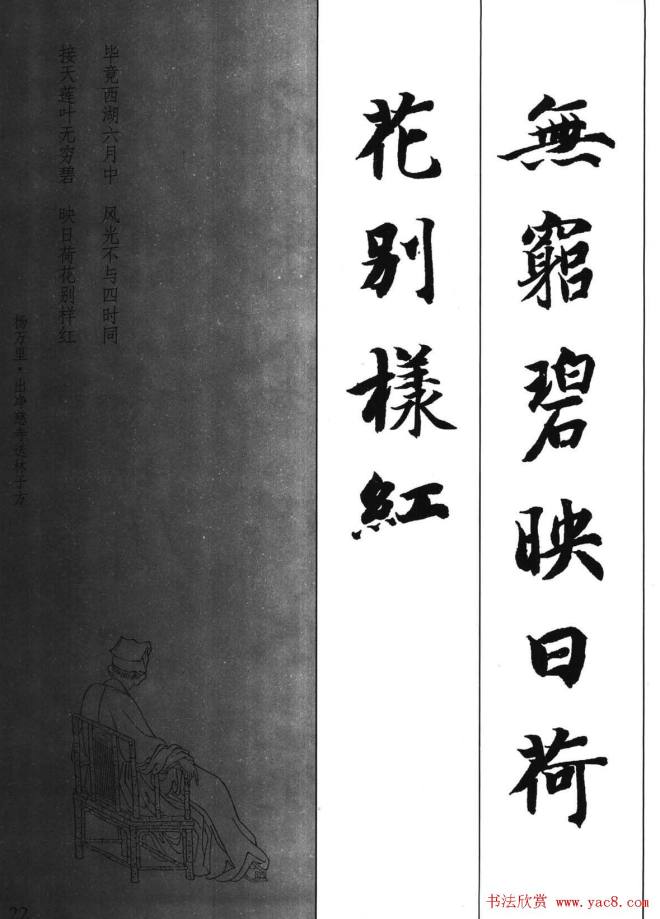 無窮碧映日荷
花別樣紅
毕竟西湖六月中　风光不与四时同
接天莲叶无穷碧　映日荷花别样红
杨万里·出净慈寺送林子方
22
书法欣赏 www.yac8.com